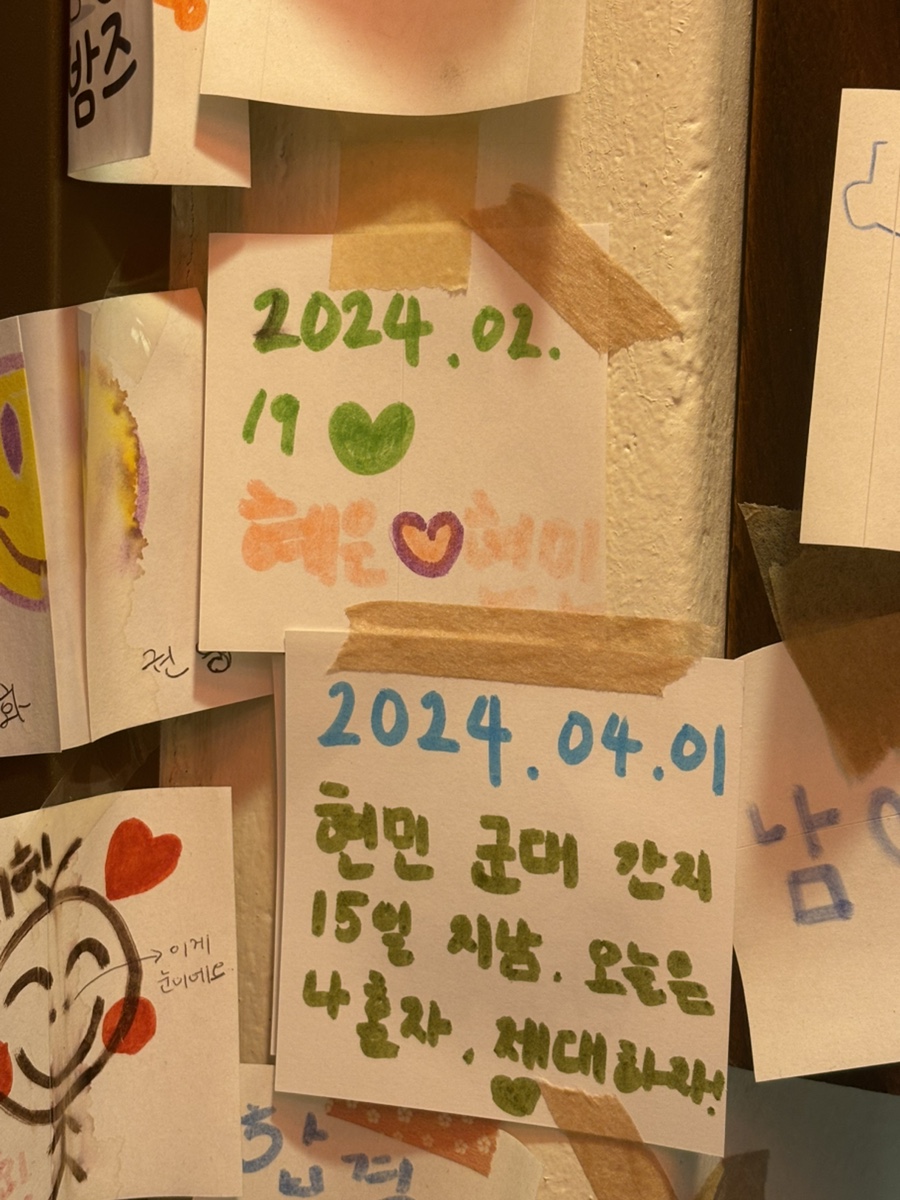 밤즈
2024.02.
19
혜은 현민
권
2024.04.01
현민 군대 간지
15일 지남. 오늘은
나 혼자. 제대하라!
남
이게
눈이에요